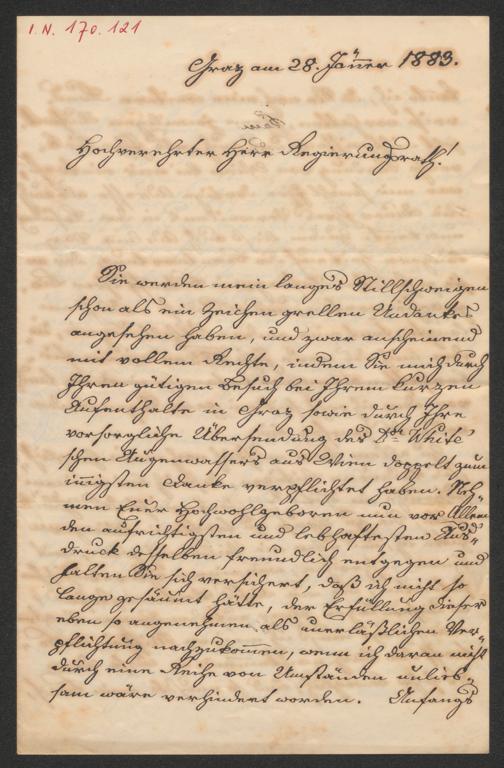 I. N. 170.121
Graz am 28. Jänner 1883.
Hochverehrter Herr Regierungsrath!
Sie werden mein langes Stillschweigen
schon als ein Zeichen grellen Undankes
angesehen haben, und zwar anscheinend
mit vollem Rechte, indem Sie mich durch
Ihren gütigen Besuch bei Ihrem kurzen
Aufenthalte in Graz sowie durch Ihre
vorsorgliche Übersendung des Dr. White'
schen Augenwassers aus Wien doppelt zum
innigsten Danke verpflichtet haben. Neh-
men Euer Hochwohlgeboren nun vor Allem
den aufrichtigsten und lebhaftesten Aus-
druck desselben freundlich entgegen und
halten Sie sich versichert, daß ich nicht so
lange gesäumt hätte, der Erfüllung dieser
eben so angenehmen als unerläßlichen Ver-
pflichtung nachzukommen, wenn ich daran nicht
durch eine Reihe von Umständen unlieb-
sam wäre verhindert worden. Anfangs